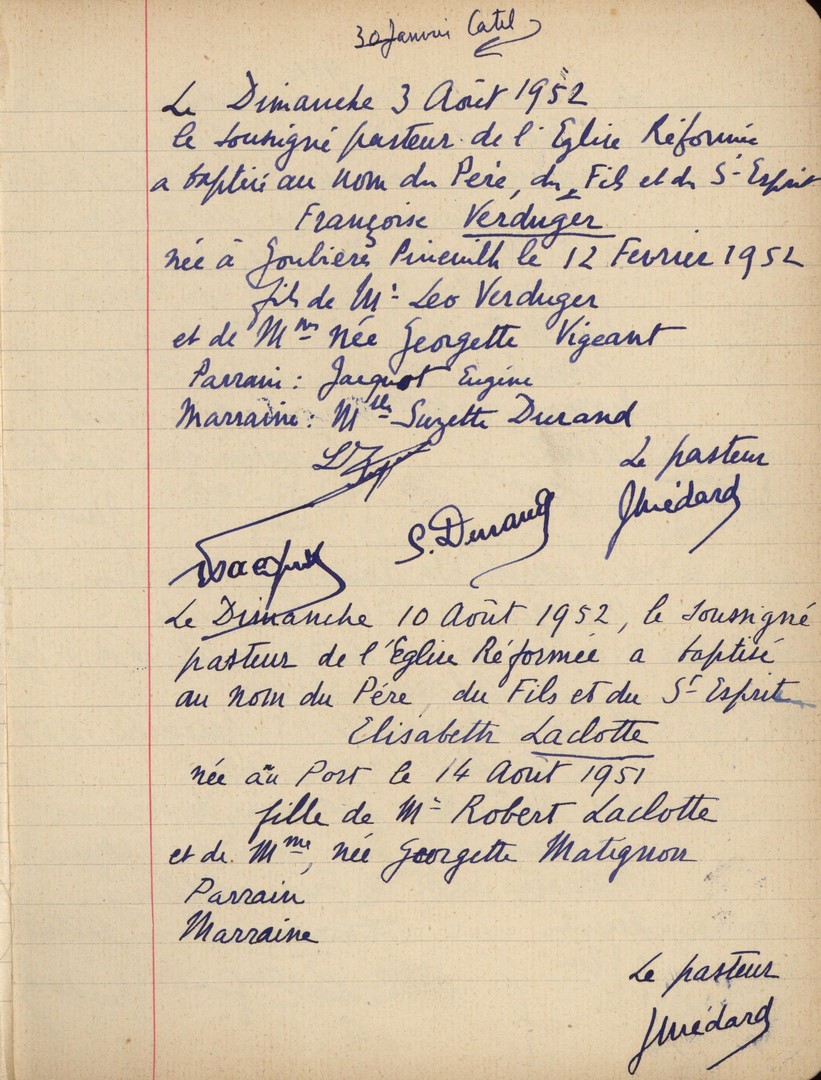 30 Janvier Catel
Le Dimanche 3 Août 1952
le soussigné pasteur de l'Eglise Réformée
a baptisé au nom du Père, du Fils et du St Esprit
Françoise Verduger
née à Pineuilh le 12 Fevrier 1952
fils de Mr Leo Verduger
et de Mme née Georgette Vigeant
Parrain : Jacquot Eugène
Marraine : Mlle Suzette Durand
Le pasteur
S. Durand
Le Dimanche 10 Août 1952, le soussigné
pasteur de l'Eglise Réformée a baptisé
au nom du Père du Fils et du St Esprit
Elisabeth Laclotte
née au Port le 14 Aout 1951
fille de Mr Robert Laclotte
et de Mme, née Georgette Matignon
Parrain
Marraine
Le pasteur